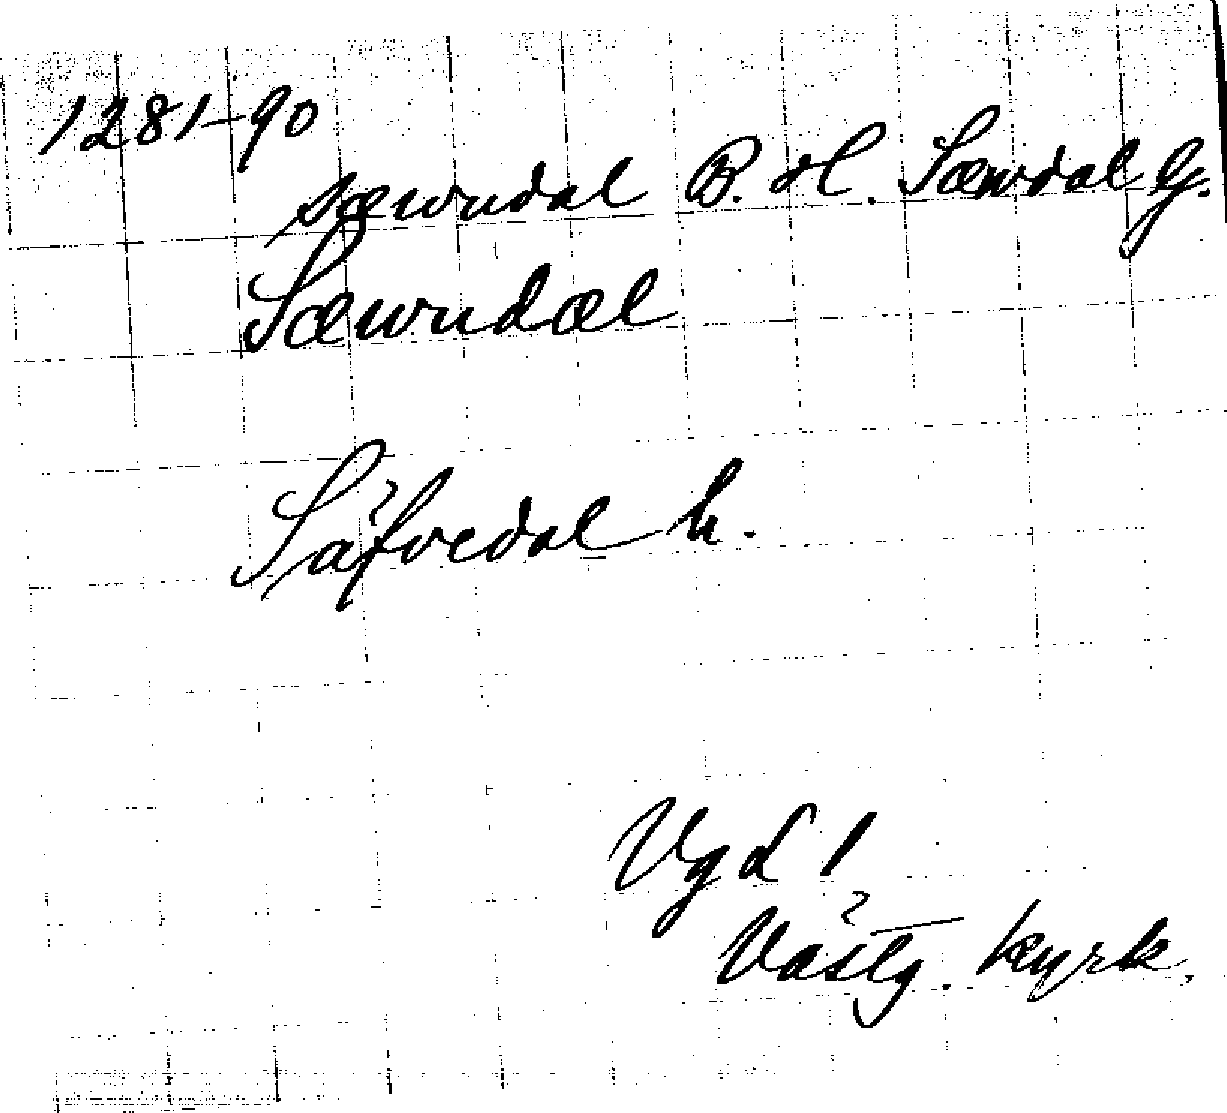 1281-90
sæwudal B. H. Sæwdal G.
Sæwudæl
Säfvedal h.
VgL 1
Västg. kyrk.